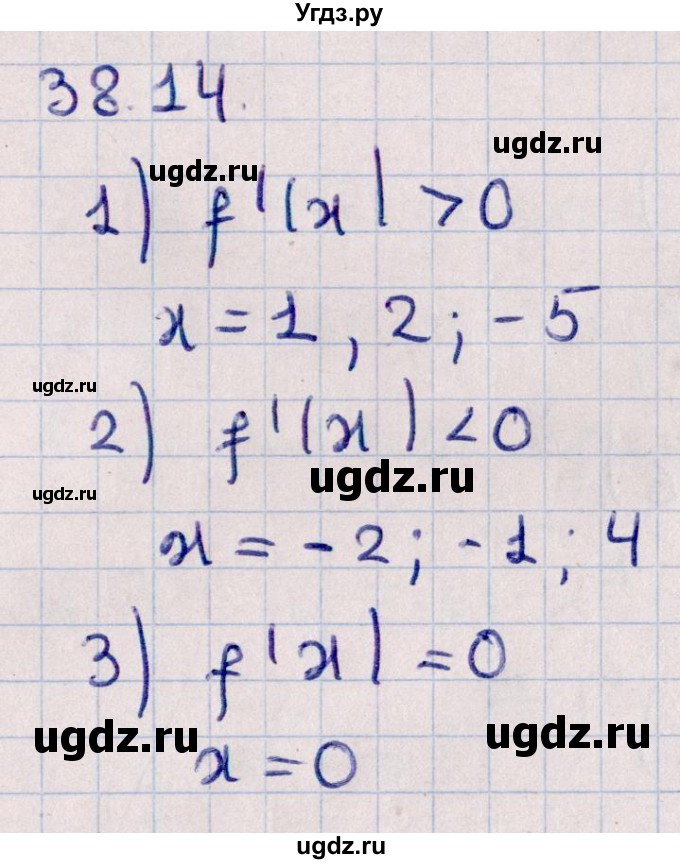 Угдз.ру
38.14.
ugdz.ru
ugdz.ru
1) f'(x) > 0
x = 1, 2; -5
ugdz.ru
2) f'(x) < 0
ugdz.ru
ugdz.ru
x = -2; -1; 4
3) f'x) = 0
ugdz.ru
ugdz.ru
x = 0
ugdz.ru